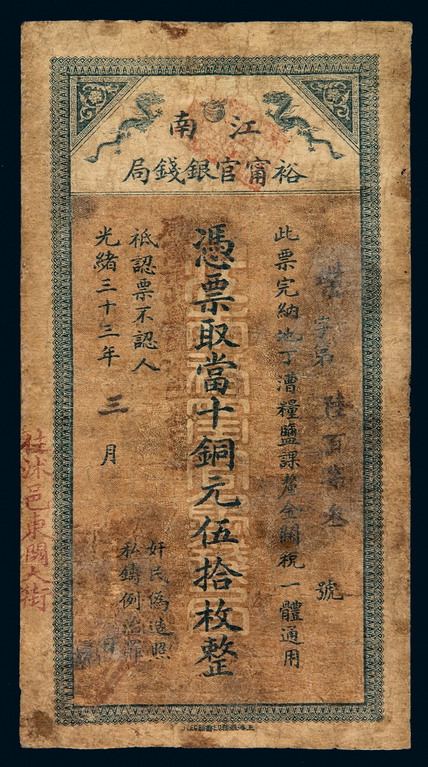 江南
裕甯官銀錢局
字第陸百柒叁號
此票完納地丁漕糧鹽課釐金關稅一體通用
憑票取當十銅元伍拾枚整
祗認票不認人
光緒三十三年三月
奸民僞造照
私鑄例治罪
沭邑東關大街